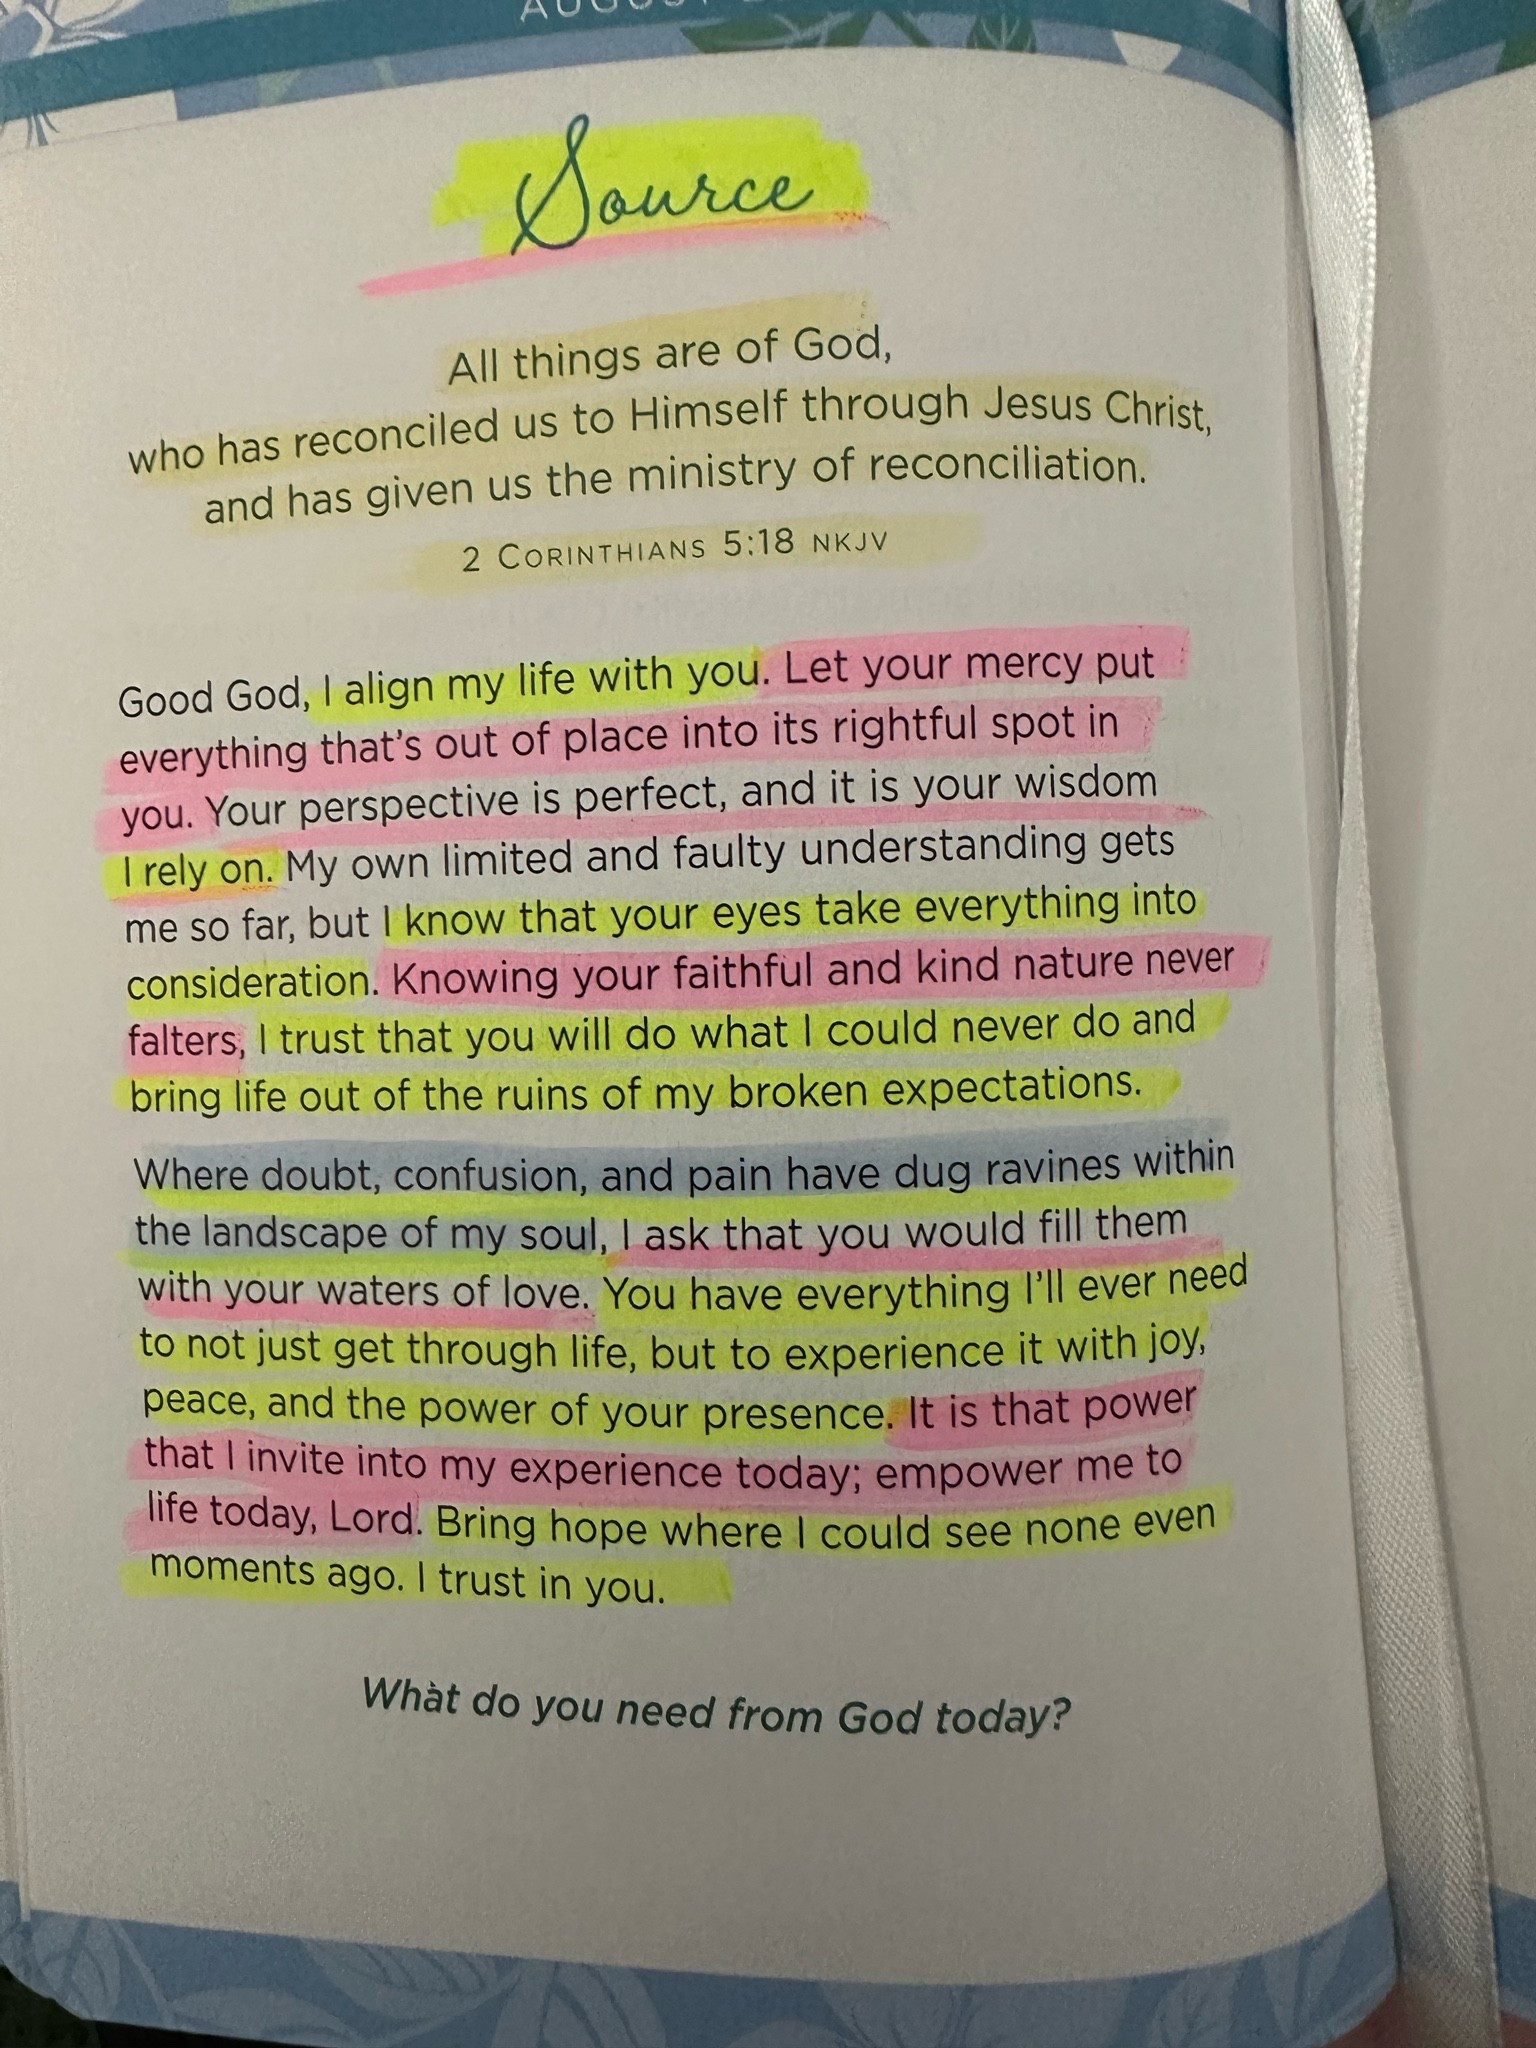 AUGUST
Source
All things are of God,
who has reconciled us to Himself through Jesus Christ,
and has given us the ministry of reconciliation.
2 CORINTHIANS 5:18 NKJV
Good God, I align my life with you. Let your mercy put
everything that's out of place into its rightful spot in
you. Your perspective is perfect, and it is your wisdom
I rely on. My own limited and faulty understanding gets
me so far, but I know that your eyes take everything into
consideration. Knowing your faithful and kind nature never
falters, I trust that you will do what I could never do and
bring life out of the ruins of my broken expectations.
Where doubt, confusion, and pain have dug ravines within
the landscape of my soul, I ask that you would fill them
with your waters of love. You have everything I'll ever need
to not just get through life, but to experience it with joy,
peace, and the power of your presence. It is that power
that I invite into my experience today; empower me to
life today, Lord. Bring hope where I could see none even
moments ago. I trust in you.
What do you need from God today?